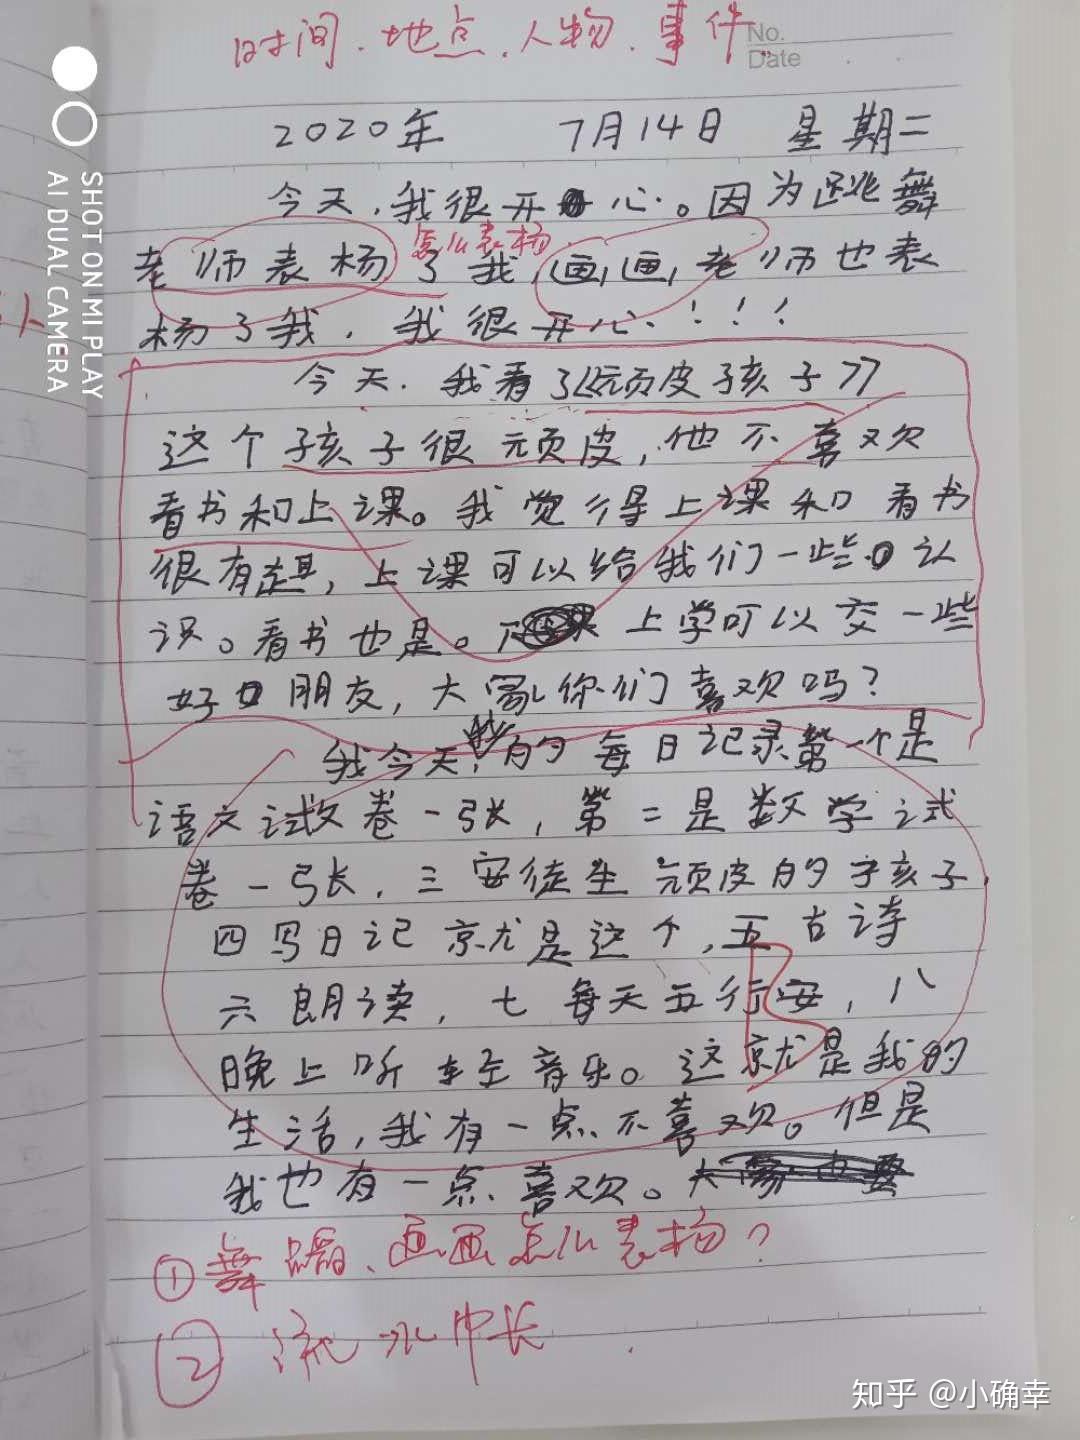 时间.地点.人物.事件
No.
Date
2020年 7月14日 星期二
今天,我很开心。因为跳舞
怎么表杨
老师表杨了我,画画,老师也表
杨了我,我很开心!!!
今天.我看了《顽皮孩子》
这个孩子很顽皮,他不喜欢
看书和上课。我觉得上课和看书
很有趣,上课可以给我们一些认
识。看书也是。上学可以交一些
好朋友,大家你们喜欢吗?
我今天的每日记录第一个是
语文试卷一张,第二是数学试
卷一张,三安徒生顽皮的孩子,
四写日记就是这个,五古诗
六朗读,七每天五行安,八
晚上听轻音乐。这就是我的
生活,我有一点不喜欢。但是
我也有一点喜欢。
①舞蹈、画画怎么表扬?
② 流水
SHOT ON MI PLAY
AI DUAL CAMERA
知乎 @小确幸